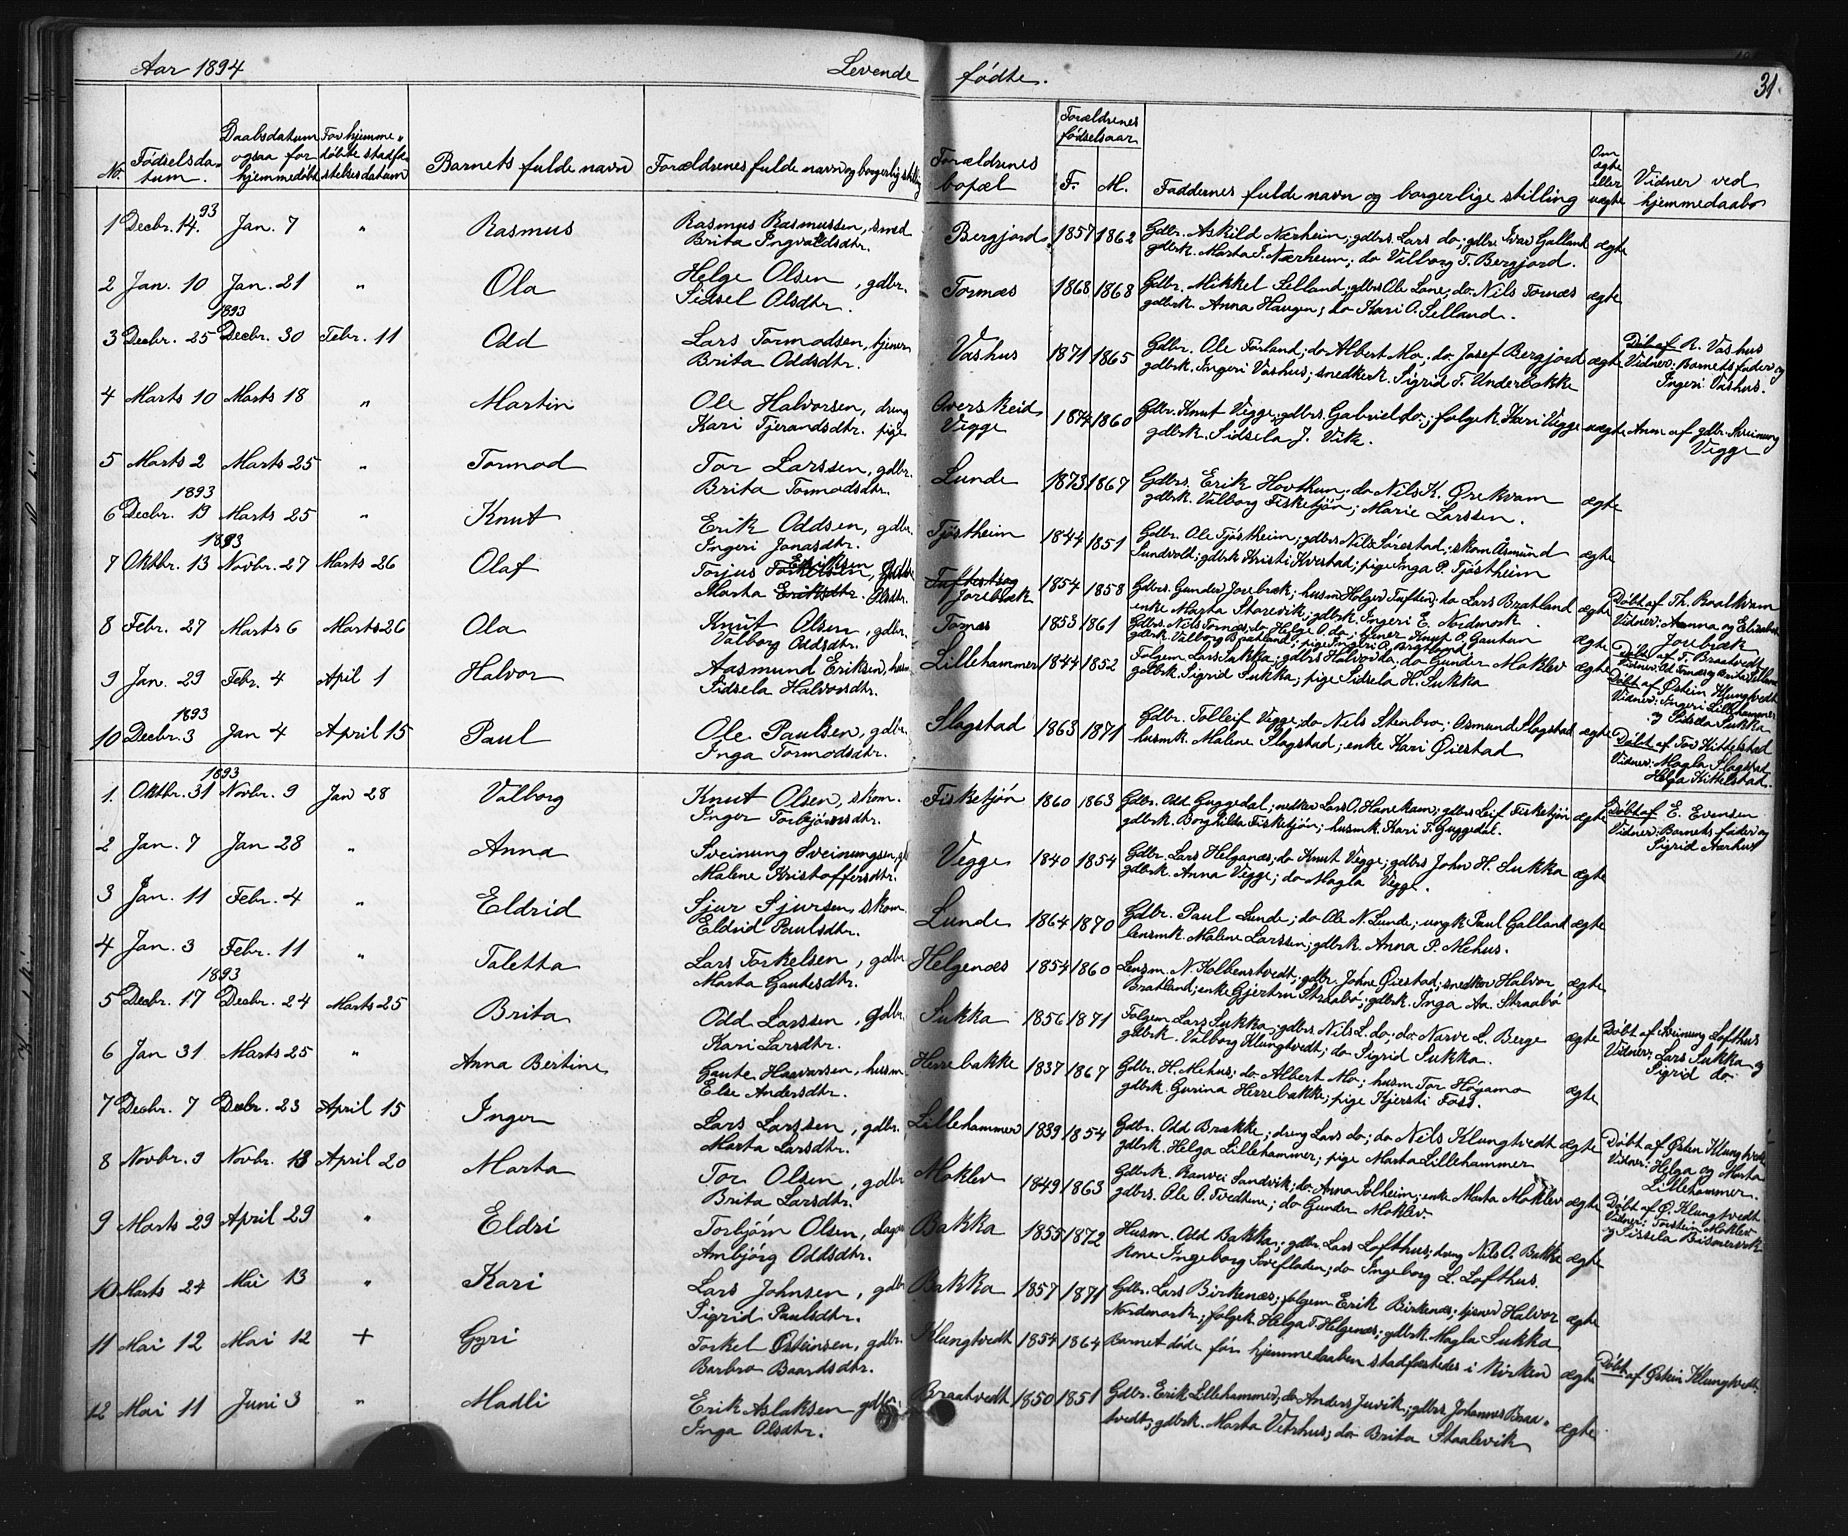 Aar 1894 Levende fødte. 31.
No. Fødselsdatum. Daabsdatum ogsaa for hjemmedøbt For hjemmedøbte stadfæstelsesdatum Barnets fulde navn Forældrenes fulde navn og borgerlig stilling Forældrenes bopæl Forældrenes fødselsaar F. M. Faddernes fulde navn og borgerlige stilling Om ægte eller uægte Vidner ved hjemmedaab
1 Decbr. 14. 93 Jan. 7 " Rasmus Rasmus Rasmussen, smed Bergjord. 1857 1862 Gdbr. Askild Nærheim; gdbrs. Lars do; gdbr. Ivar Galland ægte
Brita Ingvaldsdtr. gdbrk. Marta T. Nærheim; do Valborg T. Bergjord.
2 Jan. 10 Jan. 21 " Ola Helge Olsen, gdbr. Tornæs 1868 1868 Gdbr. Mikkel Selland; gdbrs Ole Lone; do. Nils Tornæs ægte
Sidsel Olsdtr. gdbrk. Anna Haugen; do Kari O. Selland.
3 Decbr. 25 1893 Decbr. 30 Febr. 11 Odd Lars Tormodsen, tjener Vashus 1871 1865 Gdbr. Ole Førland; do Albert Mo; do. Josef Bergjord ægte Døbt af R. Vashus
Brita Oddsdtr. gdbrk. Ingeri Vashus; snedkerk. Sigrid T. Underbakke Vidner: Barnets fader og Ingeri Vashus.
4 Marts 10 Marts 18 " Martin Ole Halvorsen, dreng Overskeid 1874 1860 Gdbr. Knut Vegge; gdbrs. Gabriel do; folgek. Kari Vegge uægte Anm. af gdbr. Sveinung
Kari Tjerandsdtr. pige Vegge gdbrk. Sidsela J. Vik. Vegge
5 Marts 2 Marts 25 " Tormod Tor Larssen, gdbr. Lunde 1873 1867 Gdbrs. Erik Hovthun; do Nils K. Ørekvam ægte
Brita Tormodsdtr. gdbrk. Valborg Fisketjøn; Marie Larssen.
6 1893 Decbr. 19 Marts 25 " Knut Erik Oddsen, gdbr. Tjøstheim 1844 1851 Gdbr. Ole Tjøstheim; gdbrs Nils Førestad; skom Asmund ægte
Ingeri Jonasdtr. Sundvold; gdbrk Kristi Kvestad; pige Inga P. Tjøstheim
7 Oktbr. 13 1893 Novbr. 27 Marts 26 Olaf Torjus Torkelsen Eriksen, 1854 1858 Gdbrs. Gunder Jorebrek; husm Holger Tuften; do Lars Bratland ægte Døbt af Th. Roalkvam
Marta Eriksdtr. Olsdtr. Jorebrek enke Marta Storevik; gdbrk Ingeri E. Nordmork. Vidner: Anna og Elisabet Jorebrek
8 Febr. 27 Marts 6 Marts 26 Ola Knut Olsen, gdbr. Tornes 1853 1861 Gdbrs. Nils Tornæs; do Helge O. do; tjener Knut O. Gautun ægte Døbt af T. Braatvedt
Valborg Oddsdtr. gdbrk. Valborg Bratland; pige Ingeri O. Bratland Vidner: Od Tornæs og Brita Selland
9 Jan. 29 Febr. 4 April 1 Halvor Aasmund Eriksen, husm Lillehammer 1844 1852 Folgem Lars Sukka; gdbrs Halvor do; do Gunder Moklev ægte Døbt af Østein Klungtvedt
Sidsela Halvorsdtr. gdbrk Sigrid Sukka; pige Sidsela H. Sukka Vidner: Ingeri Lillehammer og Sidsela Sukka
10 1893 Decbr. 3 Jan 4 April 15 Paul Ole Paulsen, gdbr. Slagstad 1863 1871 Gdbr. Tolleif Vegge; do Nils Stenbro; Osmund Slagstad ægte Døbt af Tor Kittelstad
Inga Tormodsdtr. husmk. Malene Slagstad; enke Kari Øiestad Vidner: Magla Slagstad, Helga Kittelstad.
1. Oktbr. 31 1893 Novbr. 9 Jan 28 Valborg Knut Olsen, skom. Fisketjøn 1860 1863 Gdbr. Odd Guggedal; snedker Lars O. Hanekam; gdbrs Leif Fisketjøn ægte Døbt af E. Evensen
Inger Torbjørnsdtr. gdbrk. Borghilda Fisketjøn; husmk. Kari T. Guggedal. Vidner: Barnets fader og Sigrid Aarhus
2 Jan. 7 Jan 28 " Anna Sveinung Sveinungsen, Vegge 1840 1854 Gdbr. Lars Helganæs; do Knut Vegge; gdbrs John H. Sukka ægte
Malene Kristoffersdtr. gdbrk. Anna Vegge; do Magla Vegge.
3 Jan. 11 Febr. 4 " Eldrid Sjur Sjursen, skom. Lunde 1864 1870 Gdbr. Paul Lunde; do Ole N. Lunde; ungk Paul Galland ægte
Eldrid Paulsdtr. lensmk. Malene Larssen; gdbrk. Anna P. Mehus.
4 Jan. 3 Febr. 11 " Taletta Lars Torkelsen, gdbr Helgenæs 1854 1860 Lensm. N. Kolbenstvedt; gdbr. Johne Øiestad; snedker Halvor ægte
Marta Gautesdtr. Bratland; enke Gjertru Straabø; gdbrk. Inga Aa. Straabø
5 Decbr. 17 1893 Decbr. 24 Marts 25 Brita Odd Larssen, gdbr. Sukka 1856 1871 Folgem Lars Sukka; gdbrs Nils L. do; do. Narve L. Berge ægte Døbt af Sveinung Lofthus
Kari Larsdtr. gdbrk. Valborg Klungtvedt; do Sigrid Sukka. Vidner: Lars Sukka og Sigrid do.
6 Jan 31 Marts 25 " Anna Bertine Gaute Haavarsen, husm Herrebakke 1837 1867 Gdbr. H. Mehus; do. Albert Mo; husm Tor Høgamo ægte
Else Andersdtr. gdbrk Gurina Herrebakke; pige Kjersti Foss.
7 Decbr. 7 Decbr. 23 April 15 Inger Lars Larssen, gdbr. Lillehammer 1839 1854 Gdbr. Odd Brække; dreng Lars do; do Nils Klungtvedt ægte Døbt af Østen Klungtvedt
Marta Larsdtr. gdbrk. Helga Lillehammer; pige Marta Lillehammer Vidner: Helga og Marta Lillehammer.
8 Novbr. 9 Novbr. 13 April 20 Marta Tor Olsen, gdbr Moklev 1849 1863 Gdbrk. Ranvei Sandvik; do. Anna Solheim; enke Marta Moklev ægte Døbt af Ø. Klungtvedt
Brita Larsdtr. gdbrs. Ole O. Tvedtene; do Gunder Moklev. Vidner: Torstein Moklev og Sissela Bismervik
9 Marts 29 April 29 " Eldri Torbjørn Olsen, Bakka 1855 1872 Husm. Odd Bakka; gdbr. Lars Lofthus; dreng Nils O. Bakka ægte
Ambjørg Oddsdtr. kone Ingeborg Sovefladen; do Ingeborg L. Lofthus.
10 Marts 24 Mai 13 " Kari Lars Johnsen, gdbr Bakka 1857 1871 Gdbr. Lars Birkenæs; folgem Erik Birkenæs; tjener Halvor ægte
Sigrid Paulsdtr. Nordmork; folgek. Helga T. Helgenæs; gdbrk. Magla Sukka
11 Mai 12 Mai 12 + Gyri Torkel Østeinsen, gdbr. Klungtvedt 1854 1864 Barnet døde før hjemmedaaben stadfæstedes i Kirken ægte Døbt af Østein Klungtvedt.
Barbro Baardsdtr.
12 Mai 11 Juni 3 " Madli Erik Aslaksen gdbr. Braatvedt 1850 1851 Gdbr. Erik Lillehammer, do Anders Juvik; gdbrs Johannes Braa-
Inga Olsdtr. tvedt; gdbrk. Marta Vetrhus; do Brita Staalevik ægte